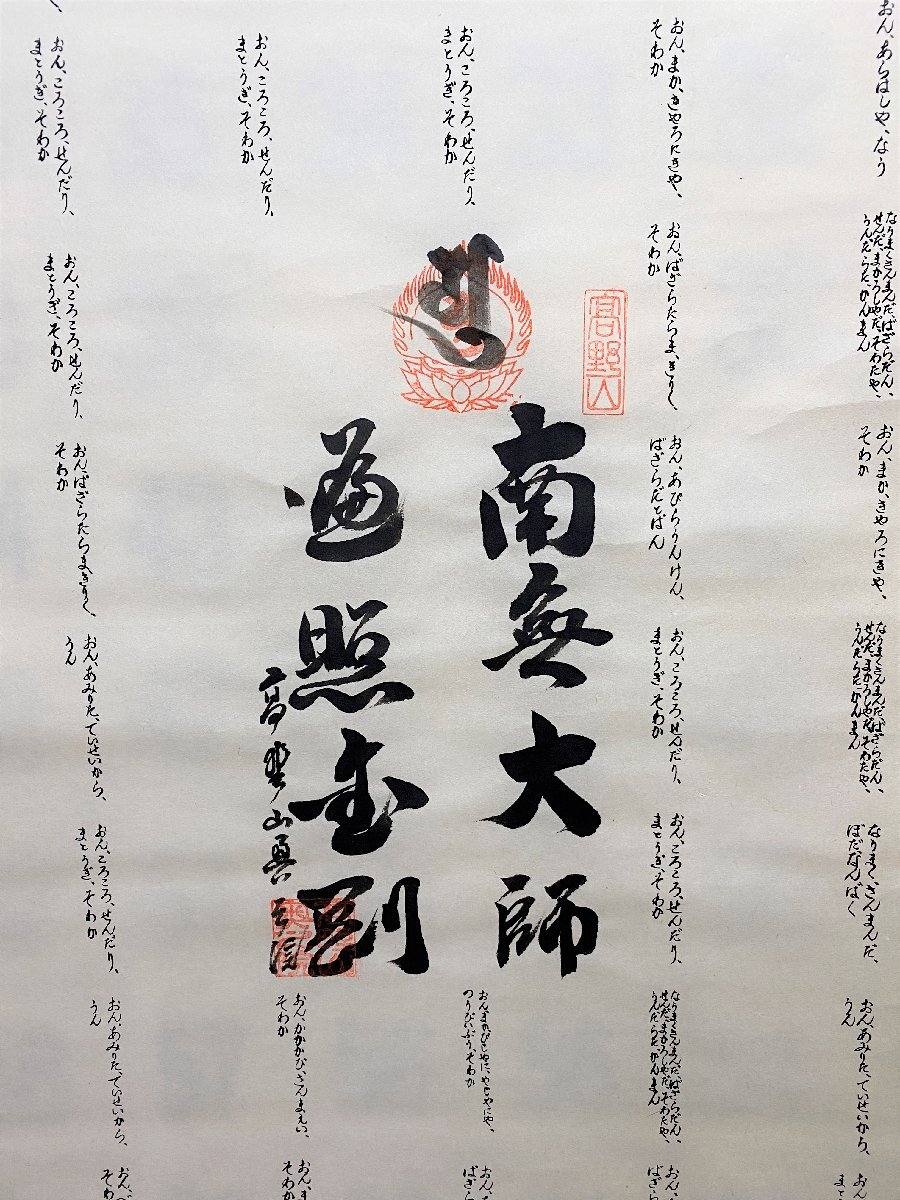 おん、あらはしや、なう
なうまくさんまんだ、ばざらだん、
せんだ、まかろしやだ、そわたや、
うんだらた、かんまん
おん、まか、きやろにきや、
そわか
なうまくさんまんだ、ばざらだん、
せんだ、まかろしやだ、そわたや、
うんたらた、かんまん
なうまく、さんまんだ、
ぼだなん、ばく
おん、あみりた、ていせいから、
うん
おん、まか、きやろにきや、
そわか
おん、ばざらたらま、きりく、
そわか
おん、あびらうんけん、
ばざら、だとばん
おん、ころころ、せんだり、
まとうぎ、そわか
おん、ころころ、せんだり、
まとうぎ、そわか
なうまくさんまんだ、ばざらだん、
せんだ、まかろしやだ、そわたや、
うんたらた、かんまん
高野山
南無大師
遍照金剛
高野山奥之院
おん、ころころ、せんだり、
まとうぎ、そわか
おん、まかびしやに、やしやにや、
つりびいぶう、そわか
おん、ころころ、せんだり、
まとうぎ、そわか
おん、かかかび、さんまえい、
そわか
おん、ころころ、せんだり、
まとうぎ、そわか
おん、ころころ、せんだり、
まとうぎ、そわか
おん、ばざらたらま、きりく、
そわか
おん、あみりた、ていせいから、
うん
おん、ころころ、せんだり、
まとうぎ、そわか
おん、あみりた、ていせいから、
うん